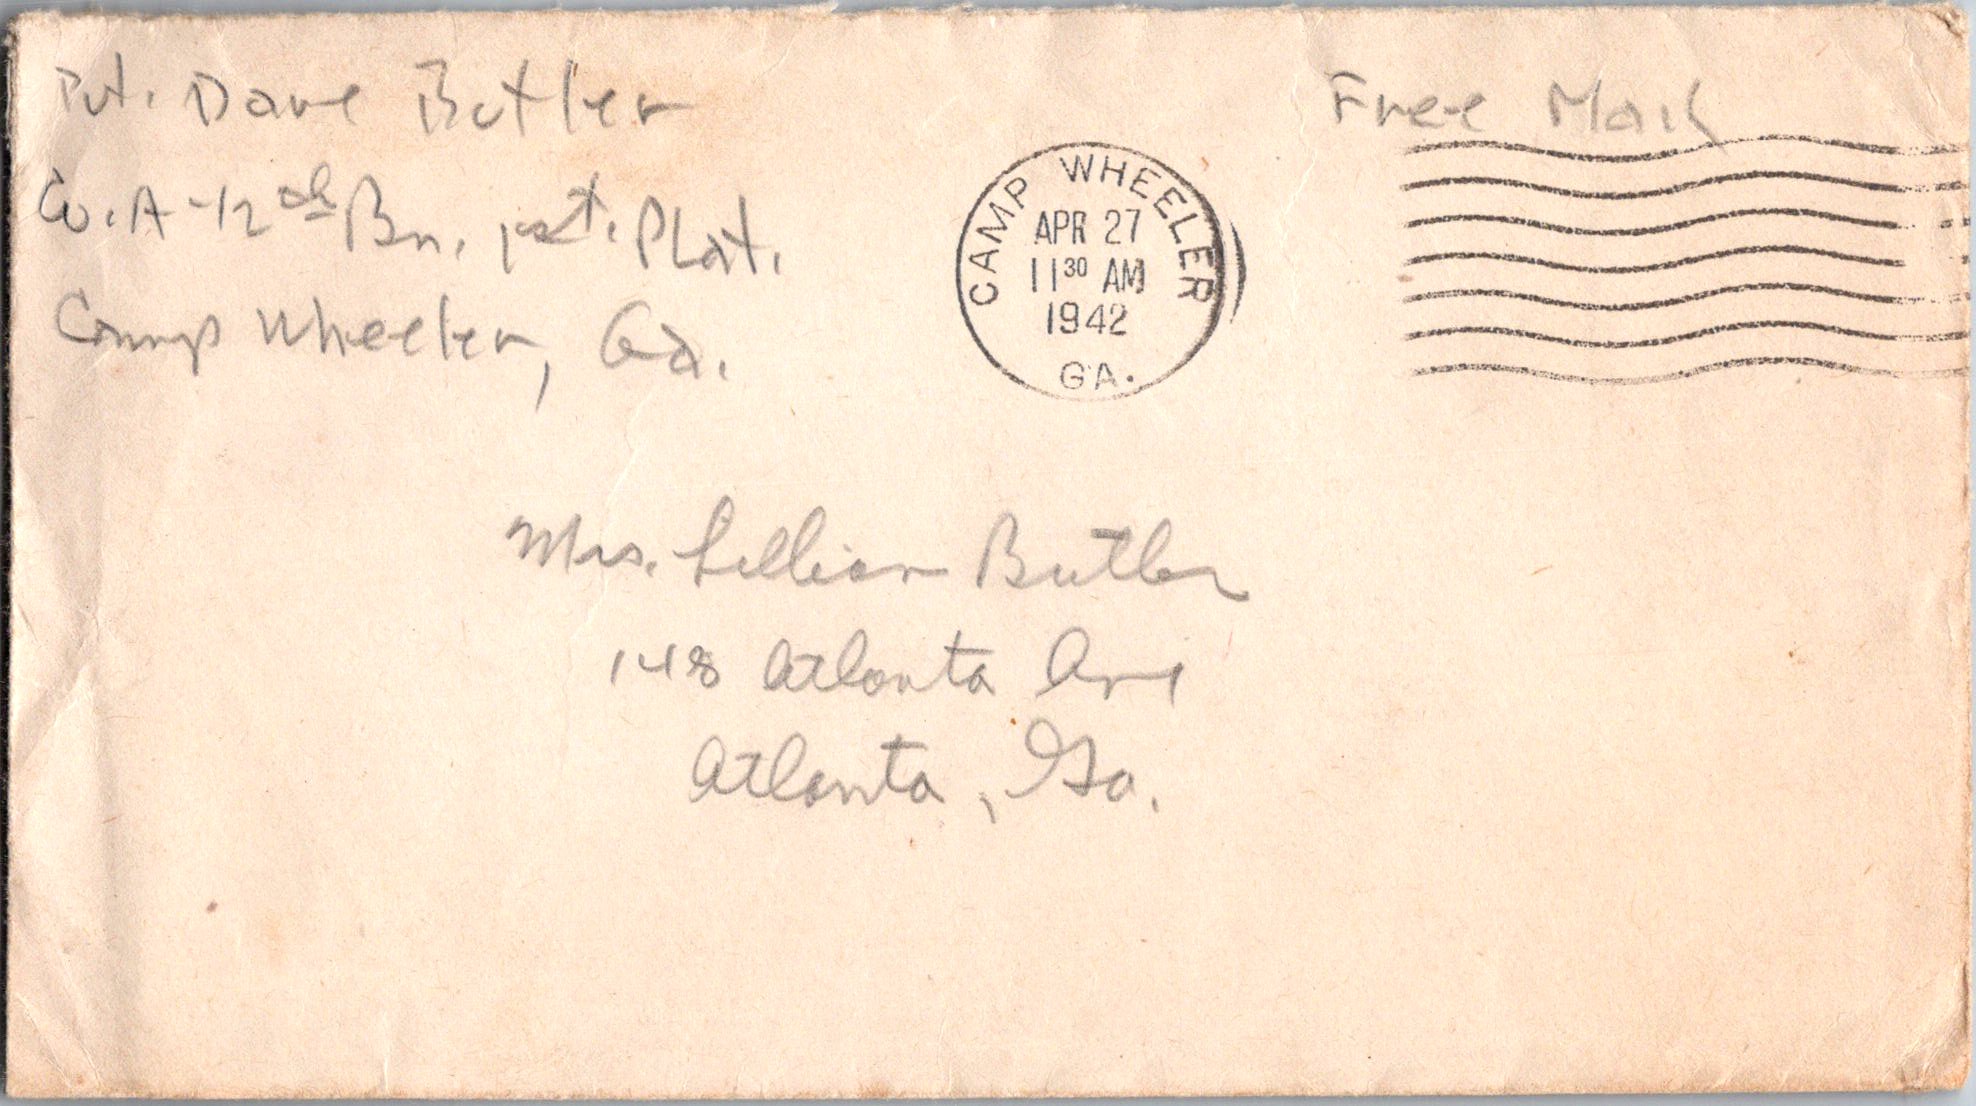 Pvt. Dave Butler
Co. A-12th Bn. 1st. Plat.
Camp Wheeler, Ga.
Free Mail
CAMP WHEELER
APR 27
11 30 AM
1942
GA.
Mrs. Lillian Butler
148 Atlanta Ave
Atlanta, Ga.